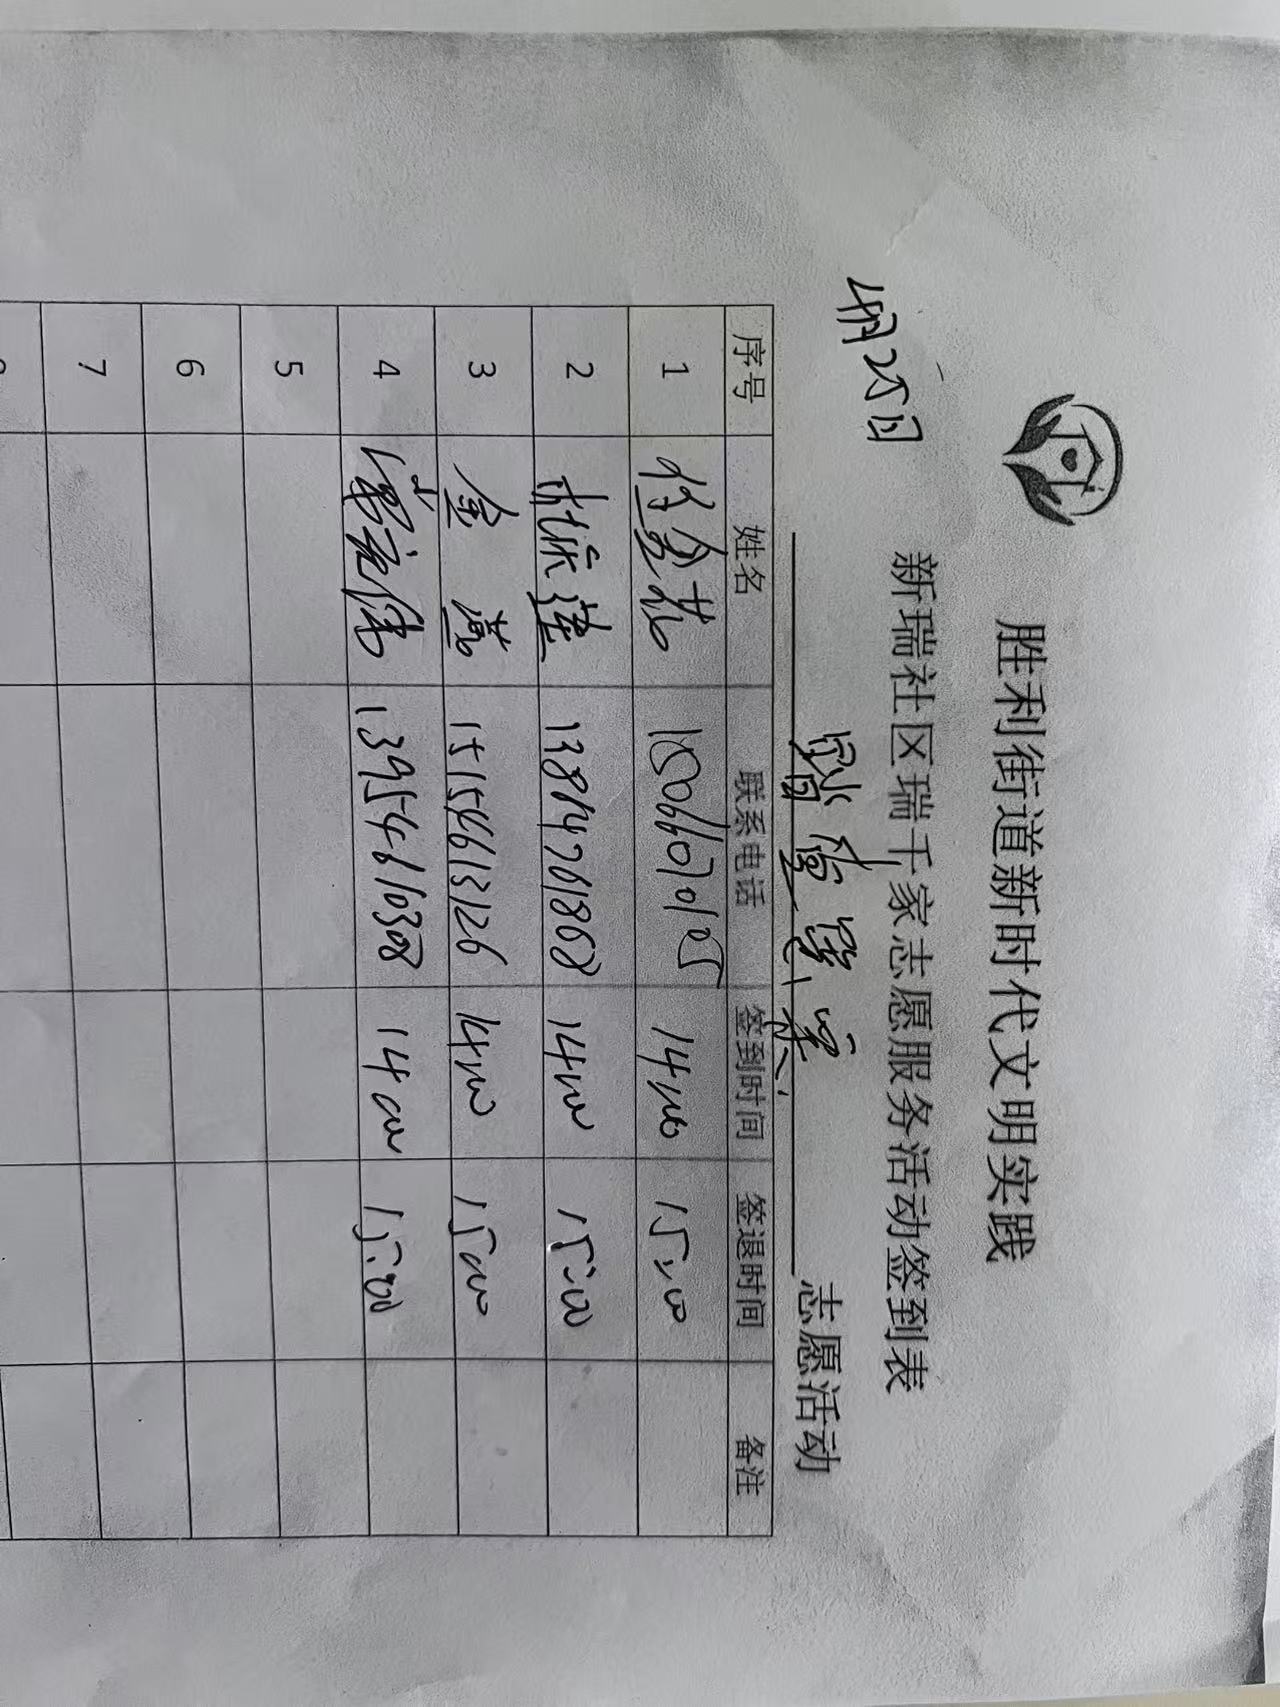 胜利街道新时代文明实践
新瑞社区瑞千家志愿服务活动签到表
4月25日
志愿活动
序号 姓名 联系电话 签到时间 签退时间 备注
1 14:00 15:00
2 14:00 15:00
3 金燕 15154613126 14:00 15:00
4 13954610308 14:00 15:00
5
6
7